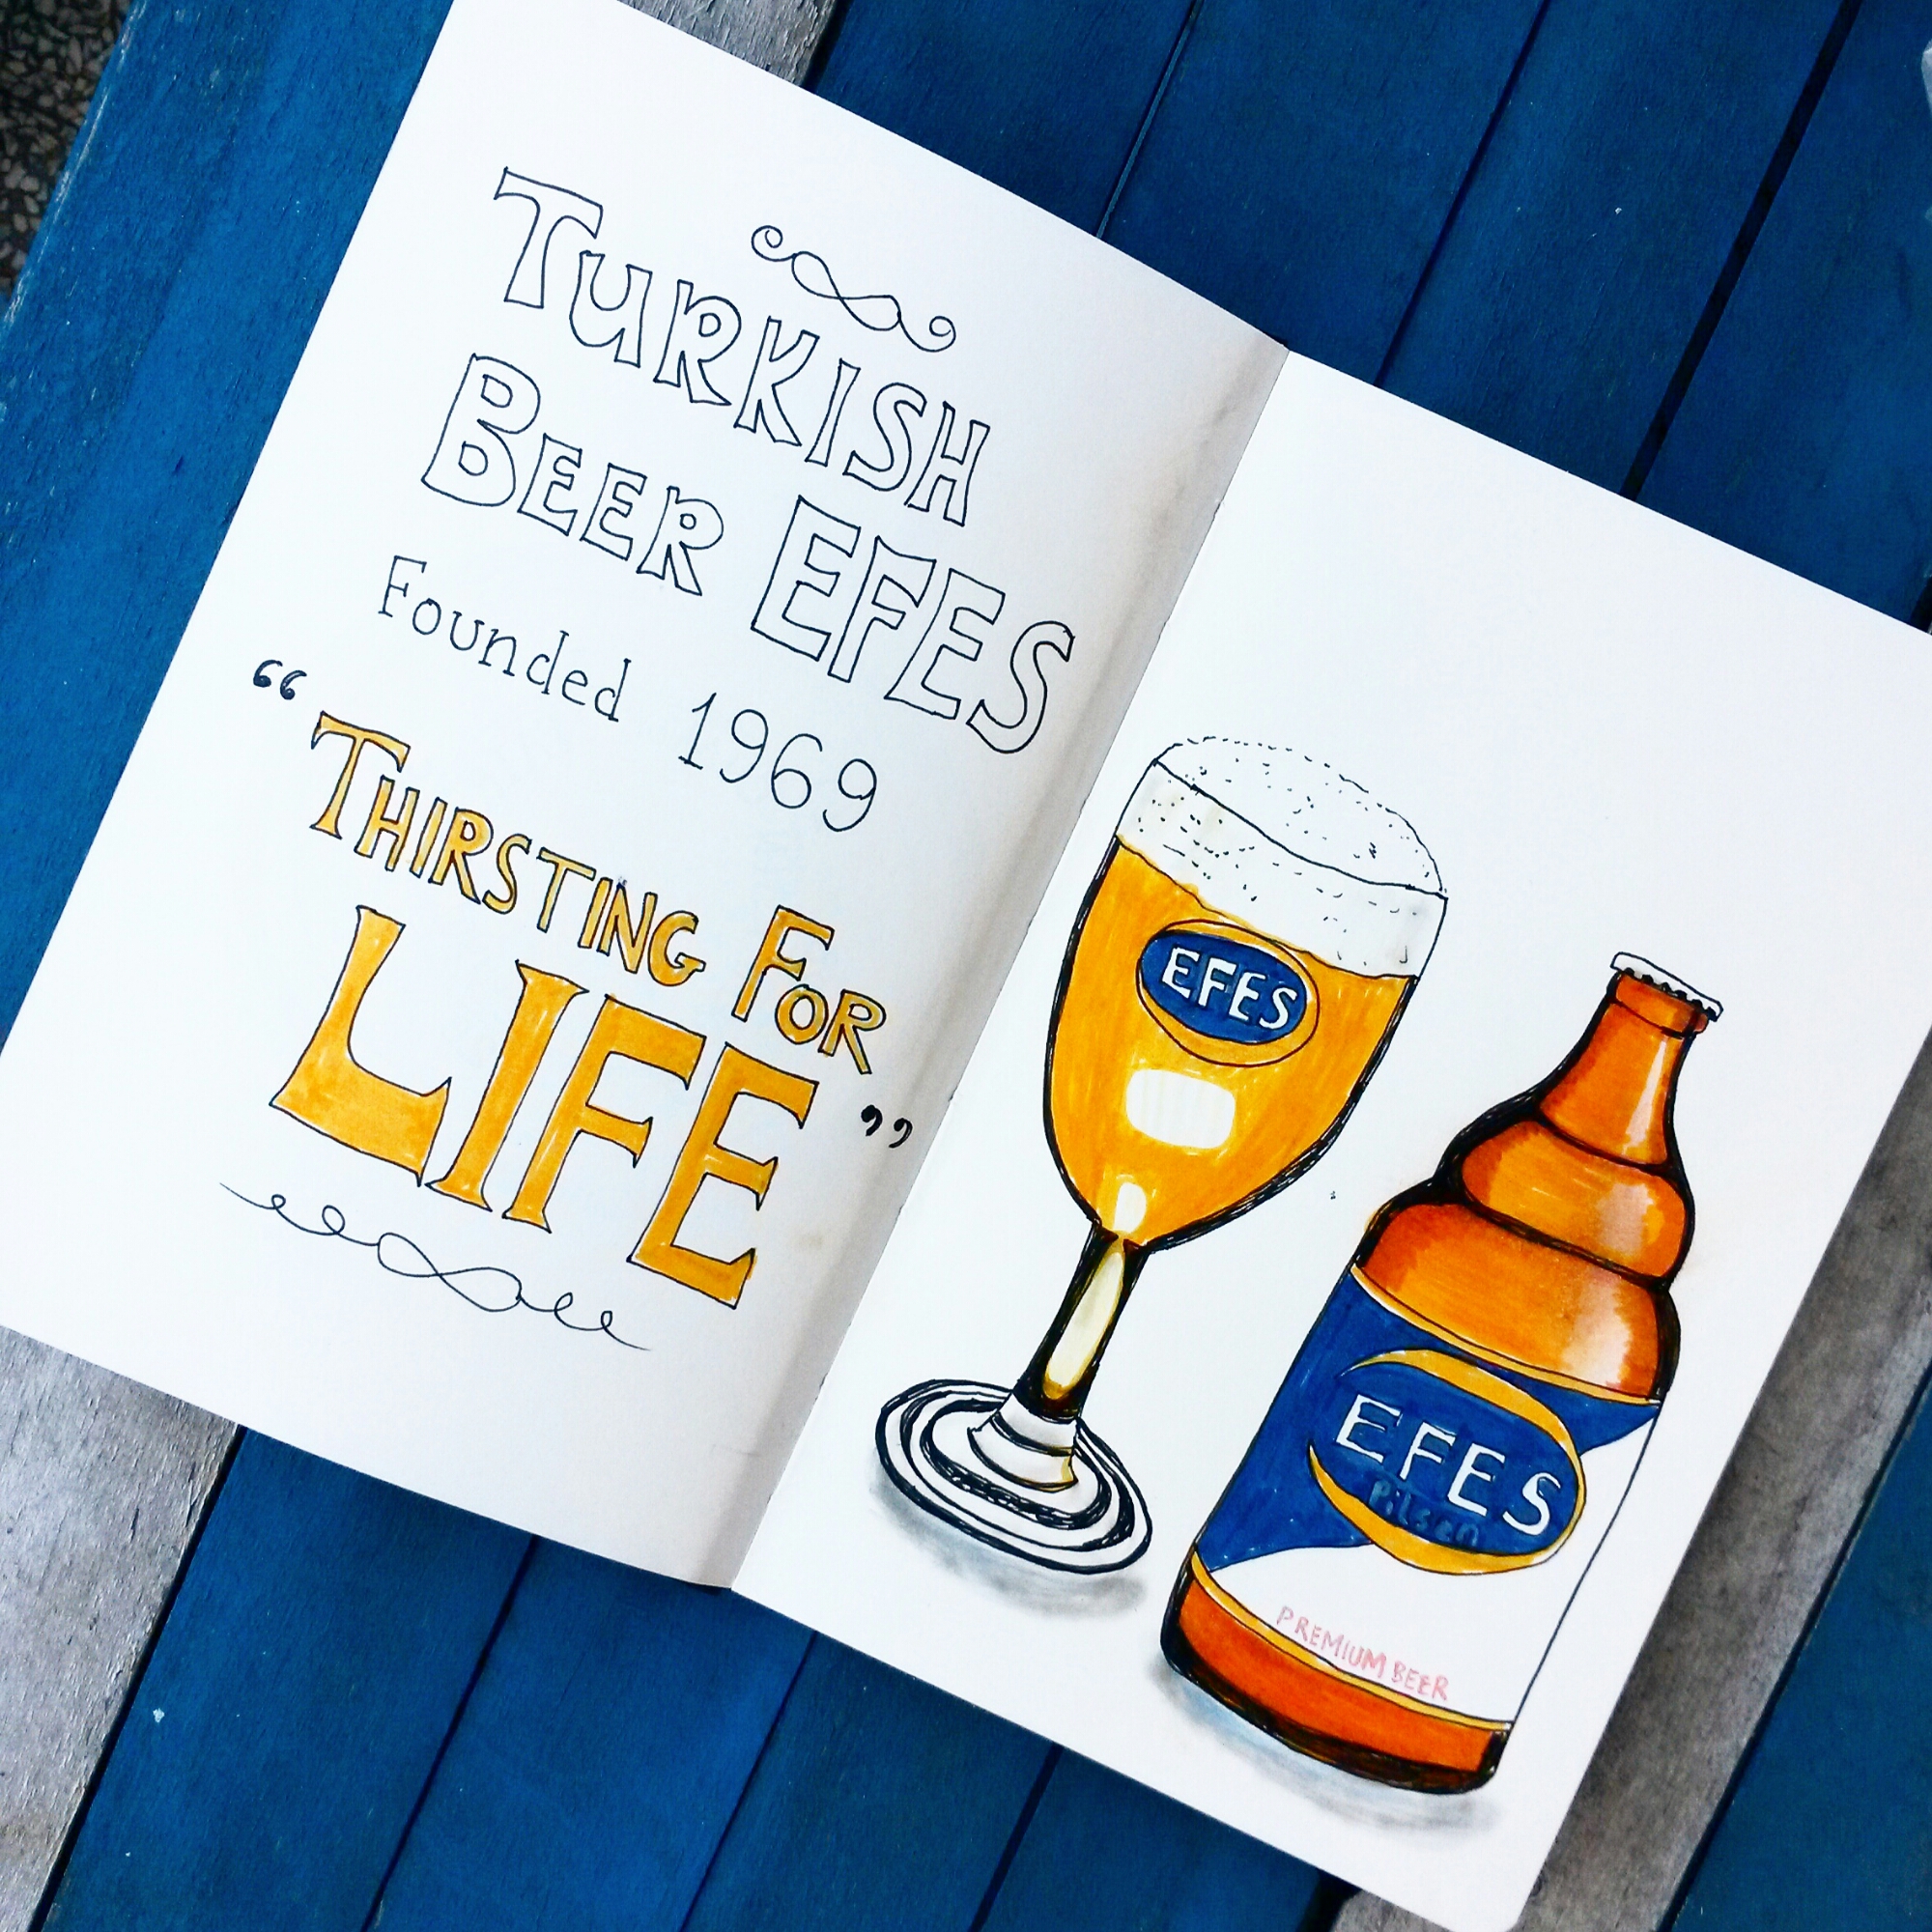 TURKISH
BEER EFES
Founded 1969
“THIRSTING FOR
LIFE”
EFES
EFES
Pilsen
PREMIUM BEER